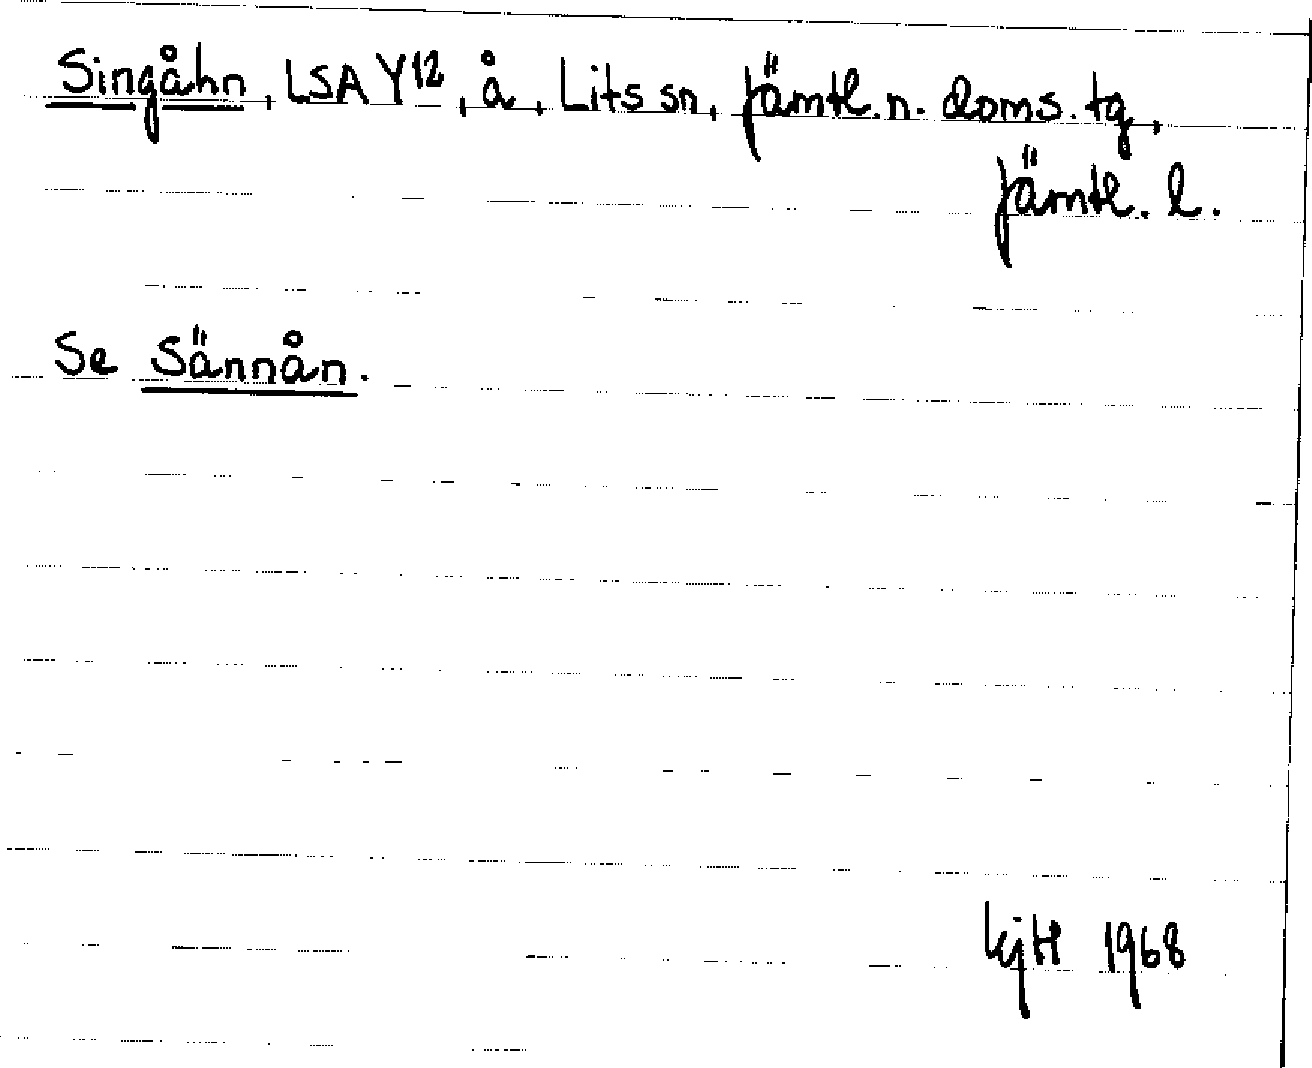 Singåhn, LSA Y12, å, Lits sn, Jämtl. n. doms. tg,
Jämtl. l.
Se Sännån.
KjH 1968